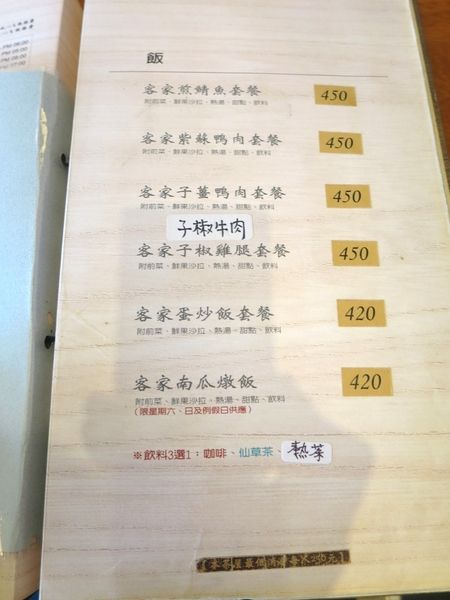 飯
客家煎鯖魚套餐 450
附前菜、鮮果沙拉、熱湯、甜點、飲料
客家紫蘇鴨肉套餐 450
附前菜、鮮果沙拉、熱湯、甜點、飲料
客家子薑鴨肉套餐 450
附前菜、鮮果沙拉、熱湯、甜點、飲料
子椒牛肉
客家子椒雞腿套餐 450
附前菜、鮮果沙拉、熱湯、甜點、飲料
客家蛋炒飯套餐 420
附前菜、鮮果沙拉、熱湯、甜點、飲料
客家南瓜燉飯 420
附前菜、鮮果沙拉、熱湯、甜點、飲料
(限星期六、日及例假日供應)
※飲料3選1：咖啡、仙草茶、熱茶